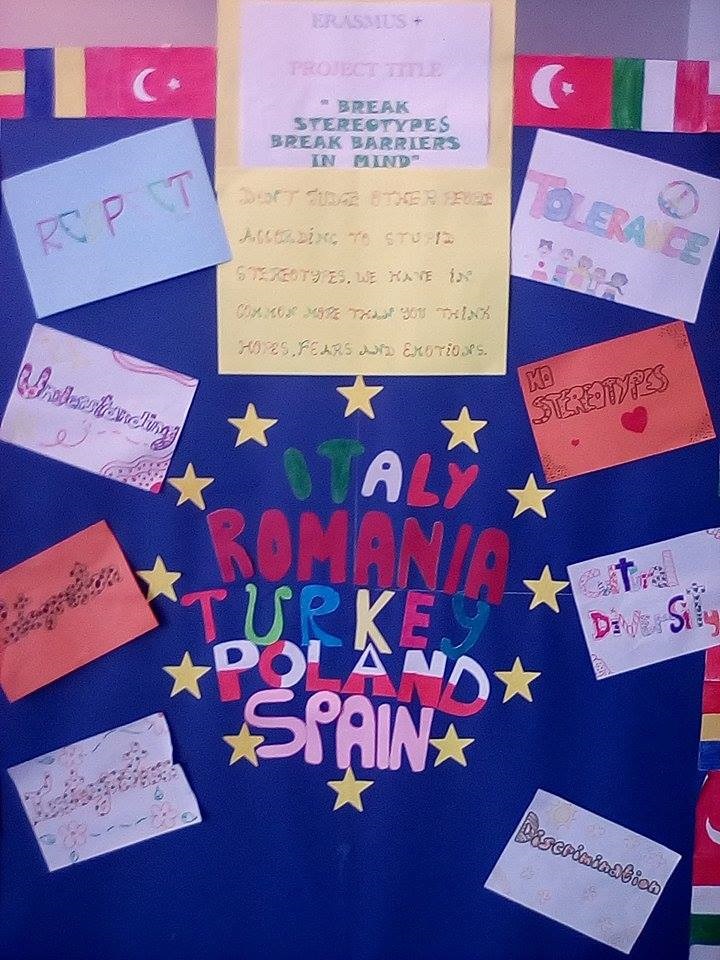 ERASMUS +
PROJECT TITLE
" BREAK
STEREOTYPES
BREAK BARRIERS
IN MIND"
DON'T JUDGE OTHER PEOPLE
ACCORDING TO STUPID
STEREOTYPES. WE HAVE IN
COMMON MORE THAN YOU THINK
HOPES, FEARS AND EMOTIONS.
RESPECT
TOLERANCE
Understanding
NO
STEREOTYPES
ITALY
ROMANIA
TURKEY
POLAND
SPAIN
Cultural
DiverSity
Integration
Discrimination